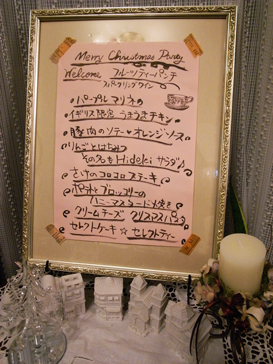 Merry Christmas Party
Welcome フルーツティーパンチ
スパークリングワイン
パープルマリネ
イギリス限定 うまうまチキン
豚肉のソテーオレンジソース
りんごとはちみつ
その名も Hideki サラダ♪
さけのコロコロステーキ
ポテトとブロッコリーの
ハニーマスタード火焼き
クリームチーズ クリスマスパック
セレクトケーキ ☆ セレクトティー